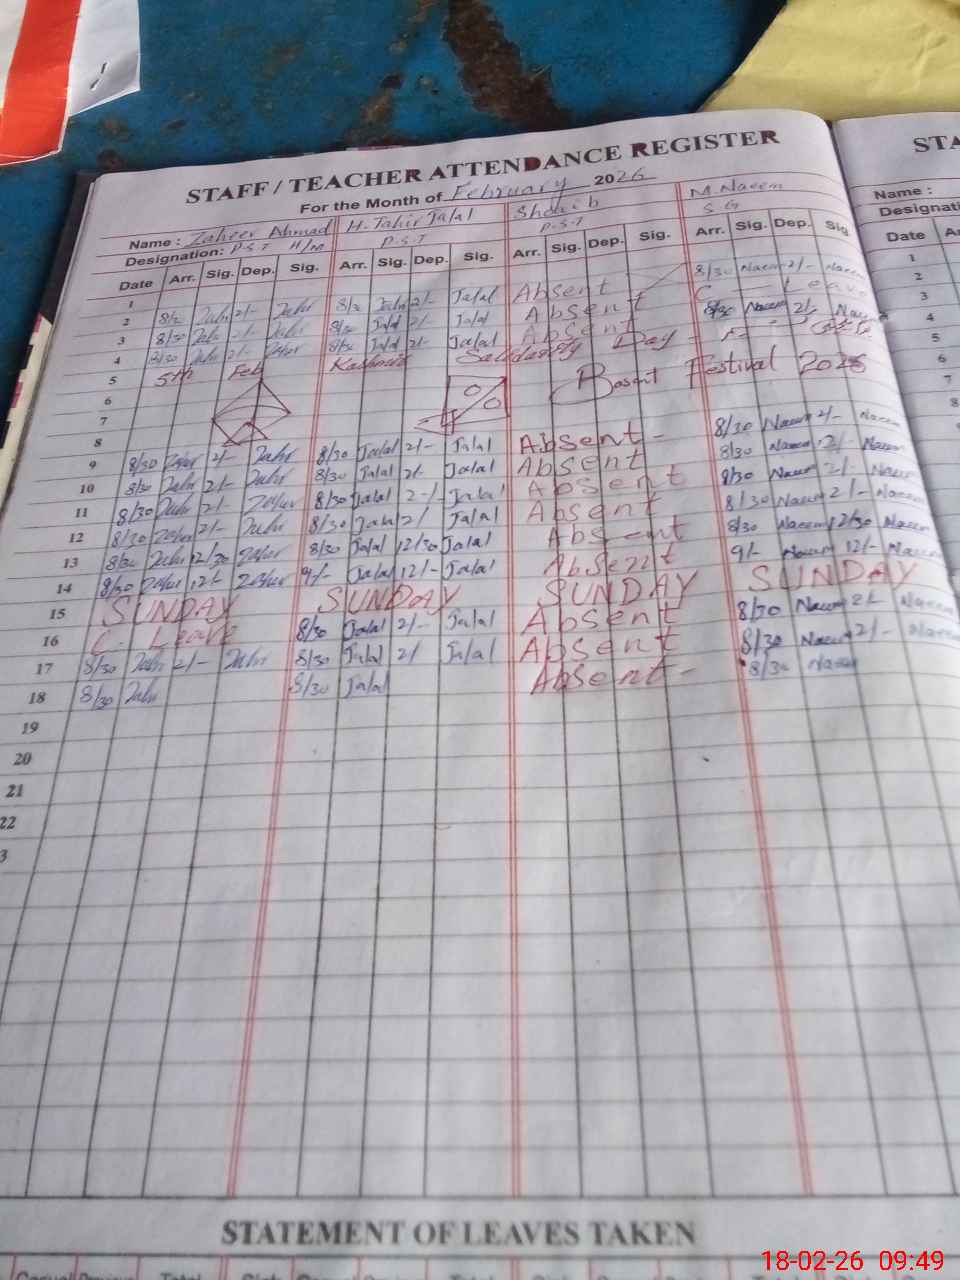 STAFF / TEACHER ATTENDANCE REGISTER
STA
For the Month of February 2026
Name : Zaheer Ahmad H. Tahir Jalal Shoaib M. Naeem
Name :
Designation: P.S.T H/M P.S.T P.S.T S G
Designati
Date Arr. Sig. Dep. Sig. Arr. Sig. Dep. Sig. Arr. Sig. Dep. Sig. Arr. Sig. Dep. Sig
Date A
1
2 8/30 Zahr 2/- Zahr 8/30 Jalal 2/- Jalal Absent 8/30 Naeem 2/- Naeem
3 8/30 Zahr 2/- Zahr 8/30 Jalal 2/- Jalal Absent C Leave
4 8/30 Zahr 2/- Zaher 8/30 Jalal 2/- Jalal Absent 8/30 Naeem 2/- Naee
5 5th Feb Kashmir Solidarity Day
6 Basant Festival 2026
7
8
9 8/30 Zaher 2/- Zahr 8/30 Jalal 2/- Jalal Absent - 8/30 Naeem 2/- Naeem
10 8/30 Zahr 2/- Zahr 8/30 Jalal 2/- Jalal Absent 8/30 Naeem 2/- Naeem
11 8/30 Zahr 2/- Zaher 8/30 Jalal 2-/ Jalal Absent 8/30 Naeem 2/- Naeem
12 8/30 Zaher 2/- Zahr 8/30 Jalal 2/ Jalal Absent 8/30 Naeem 2/- Naeem
13 8/30 Zahr 12/30 Zaher 8/30 Jalal 12/30 Jalal Absent 8/30 Naeem 12/30 Naeem
14 8/30 Zaher 12/- Zaher 9/- Jalal 12/- Jalal Absent 9/- Naeem 12/- Naeem
15 SUNDAY SUNDAY SUNDAY SUNDAY
16 C. Leave 8/30 Jalal 2/- Jalal Absent 8/30 Naeem 2/- Naeem
17 8/30 Zahr 2/- Zahr 8/30 Jalal 2/ Jalal Absent 8/30 Naeem 2/- Naeem
18 8/30 Zahr 8/30 Jalal Absent - 8/30 Naeem
19
20
21
22
3
1
2
3
4
5
6
7
8
STATEMENT OF LEAVES TAKEN
18-02-26 09:49